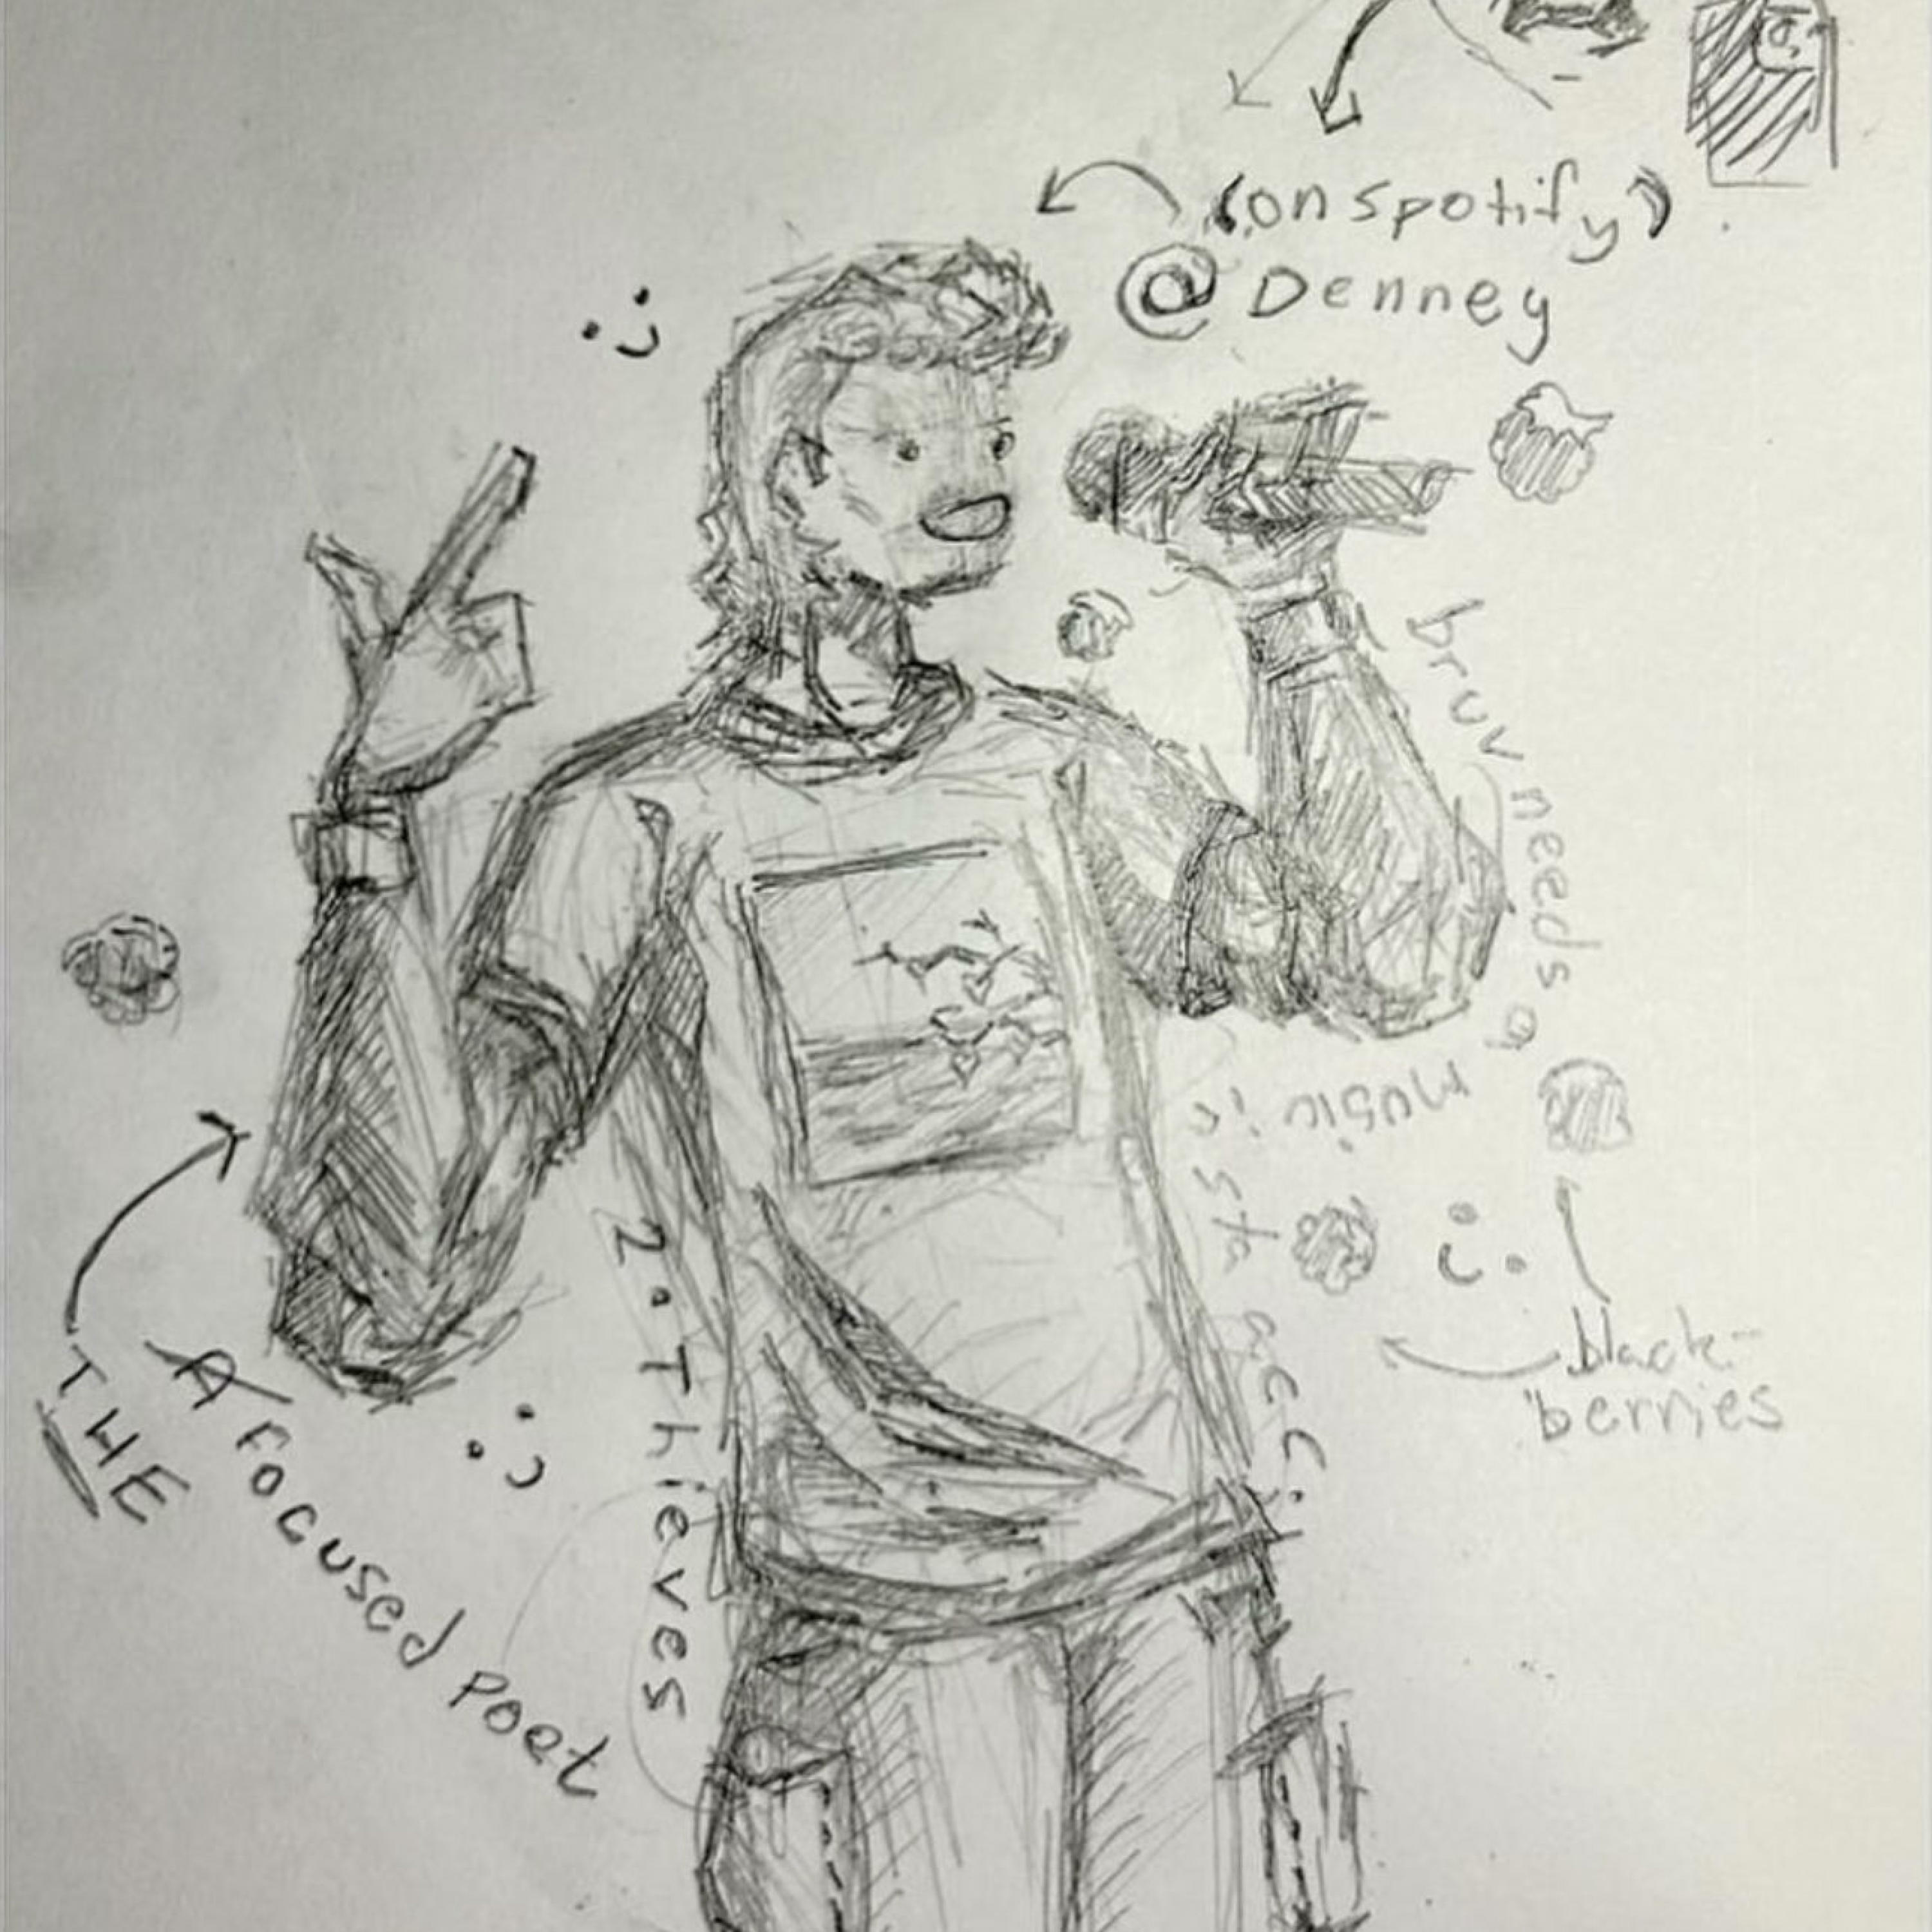 (on spotify)
@Denney
bruv needs a
music insta acc!!
black-
berries
2. Thieves
THE
A focused poet